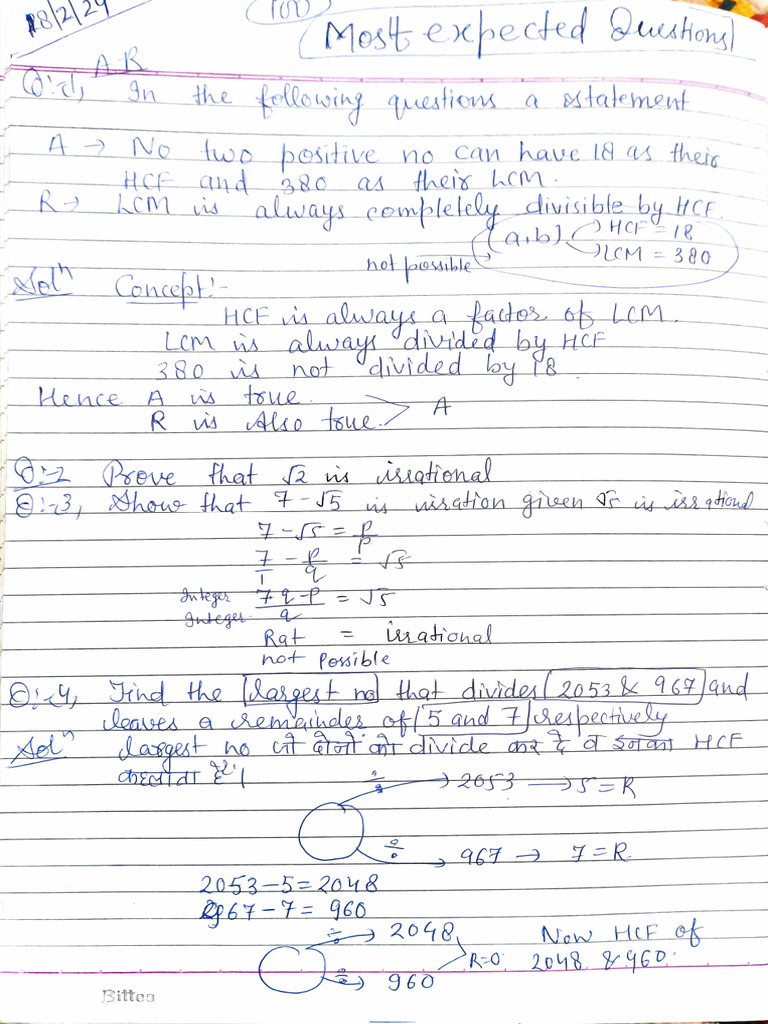 18/2/24
100
Most expected Questions
A R
Q:-1, In the following questions a statement
A → No two positive no can have 18 as their
HCF and 380 as their LCM.
R → LCM is always completely divisible by HCF.
(a,b) → HCF = 18
→ LCM = 380
not possible
Solⁿ Concept:-
HCF is always a factor of LCM.
LCM is always divided by HCF
380 is not divided by 18.
Hence A is true.
R is Also true. > A
Q:-2 Prove that √2 is irrational
Q:-3, Show that 7-√5 is irration given √5 is irrational
7-√5 = p/p
7/1 - p/q = √5
Integer 7q-p/q = √5
Integer
Rat = irrational
not possible
Q:-4, Find the largest no that divides 2053 & 967 and
leaves a remainder of 5 and 7 respectively
Solⁿ largest no जो दोनों को divide कर दे व इनका HCF
कहलाता है।
÷ → 2053 → 5 = R
÷ → 967 → 7 = R
2053-5 = 2048
967-7 = 960
÷ → 2048
÷ → 960
R=0
Now HCF of
2048 & 960.
Bittoo